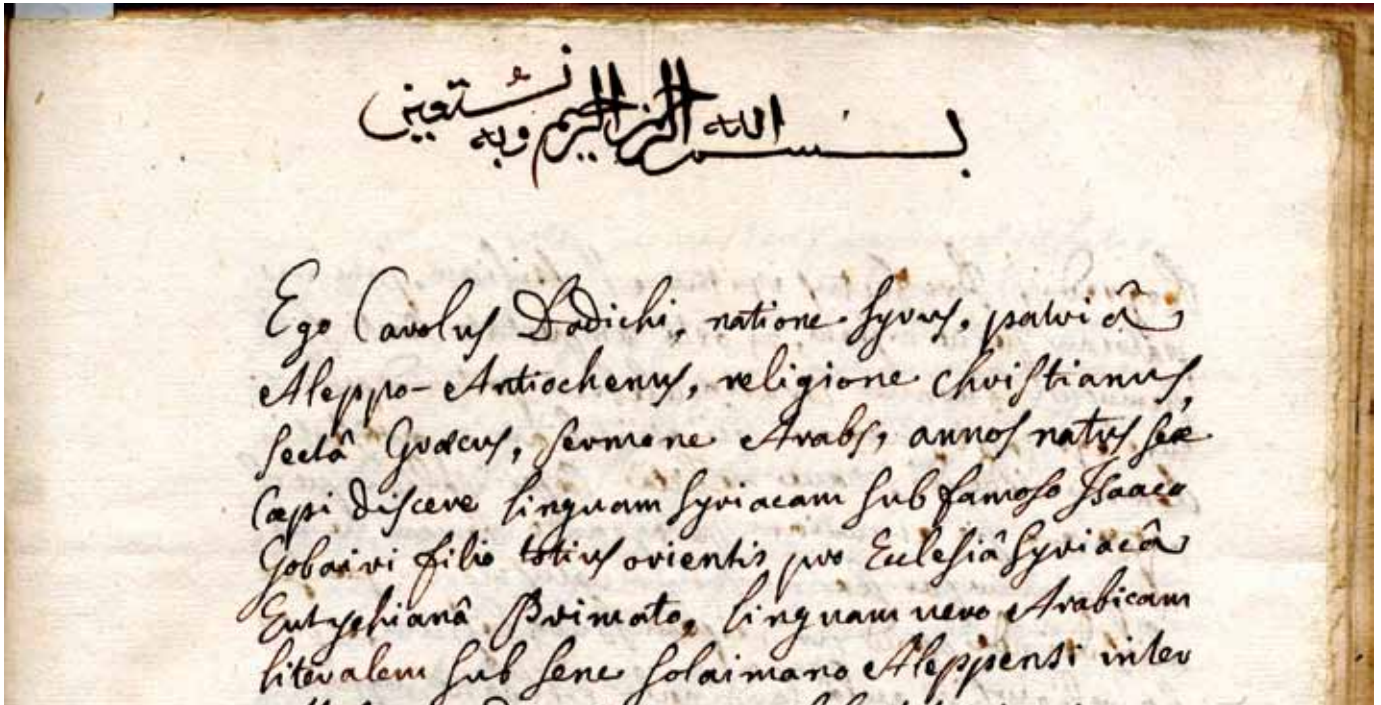 بسم الله الرحمن الرحيم وبه نستعين
Ego Carolus Dadichi, natione Syrus, patriâ
Aleppo-Antiochenus, religione Christianus,
sectâ Græcus, sermone Arabs, annos natus sex
Cæpi discere linguam Syriacam sub famoso Isaaco
Gobairi filio totius orientis pro Ecclesiâ Syriacâ
Eutychianâ Primato, linguam vero Arabicam
literalem sub sene Solaimano Aleppensi inter